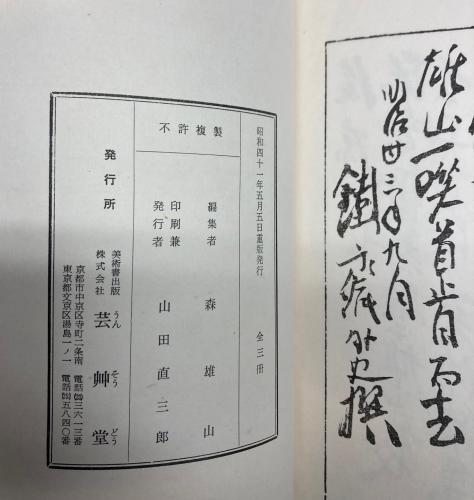 雄山一噱首肯而去
明治廿三年九月
外史撰
昭和四十一年五月五日重版発行 全三冊
不許複製
編集者 森雄山
印刷兼
発行者 山田直三郎
発行所
美術書出版
株式会社
芸艸堂
うんそうどう
京都市中京区寺町二条南 電話 三六一三番
東京都文京区湯島一ノ一 電話 五八四〇番